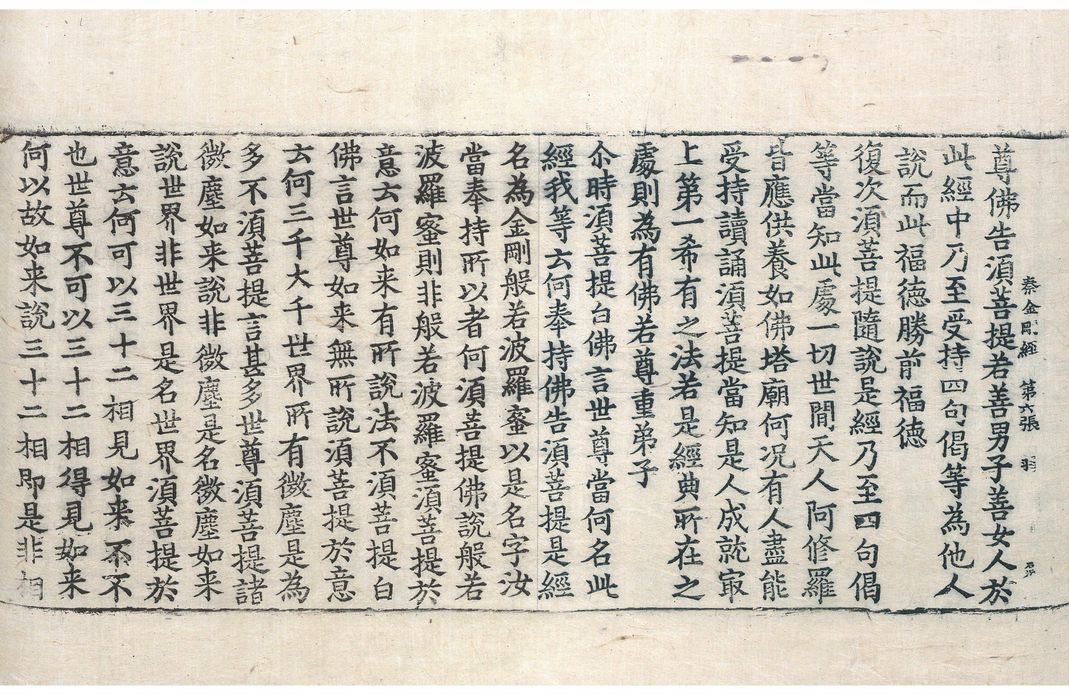 秦金剛經　第六張　羽
尊佛告湏菩提若善男子善女人於
此經中乃至受持四句偈等為他人
說而此福德勝前福德
復次湏菩提隨說是經乃至四句偈
等當知此處一切世間天人阿修羅
皆應供養如佛塔廟何况有人盡能
受持讀誦湏菩提當知是人成就㝡
上第一希有之法若是經典所在之
處則為有佛若尊重弟子
尒時湏菩提白佛言世尊當何名此
經我等云何奉持佛告湏菩提是經
名為金剛般若波羅蜜以是名字汝
當奉持所以者何湏菩提佛說般若
波羅蜜則非般若波羅蜜湏菩提於
意云何如来有所說法不湏菩提白
佛言世尊如来無所說湏菩提於意
云何三千大千世界所有微塵是為
多不湏菩提言甚多世尊湏菩提諸
微塵如来說非微塵是名微塵如来
說世界非世界是名世界湏菩提於
意云何可以三十二相見如来不不
也世尊不可以三十二相得見如来
何以故如来說三十二相即是非相